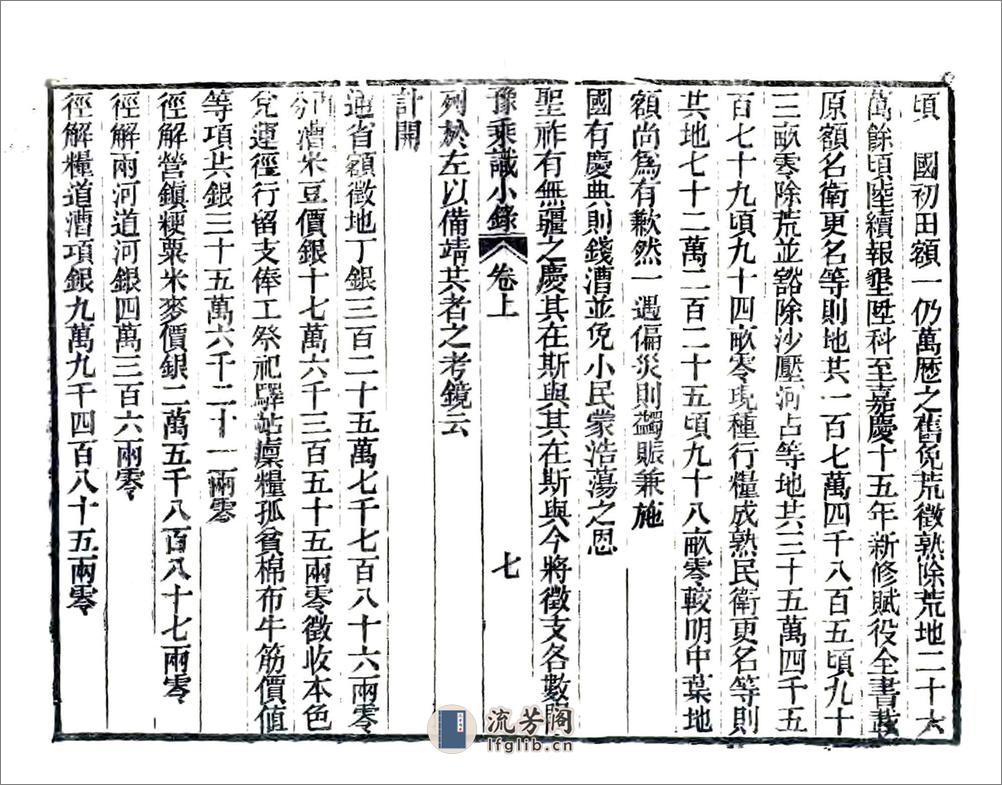 頃　國初田額一仍萬歷之舊免荒徵熟除荒地二十六
萬餘頃陸續報墾陞科至嘉慶十五年新修賦役全書載
原額名衛更名等則地共一百七萬四千八百五頃九十
三畝零除荒並豁除沙壓河占等地共三十五萬四千五
百七十九頃九十四畝零現種行糧成熟民衛更名等則
共地七十二萬二百二十五頃九十八畝零較明中葉地
額尚爲有歉然一遇偏災則蠲賑兼施
國有慶典則錢漕並免小民蒙浩蕩之恩
聖祚有無疆之慶其在斯與其在斯與今將徵支各數
豫乘識小錄 卷上 七
列於左以備靖共者之考鏡云
計開
通省額徵地丁銀三百二十五萬七千七百八十六兩零
漕米豆價銀十七萬六千三百五十五兩零徵收本色
兌運徑行留支俸工祭祀驛站廩糧孤貧棉布牛筋價值
等項共銀三十五萬六千二十一兩零
徑解營鎮粳粟米麥價銀二萬五千八百八十七兩零
徑解兩河道河銀四萬三百六兩零
徑解糧道漕項銀九萬九千四百八十五兩零
流芳閣
lfglib.cn